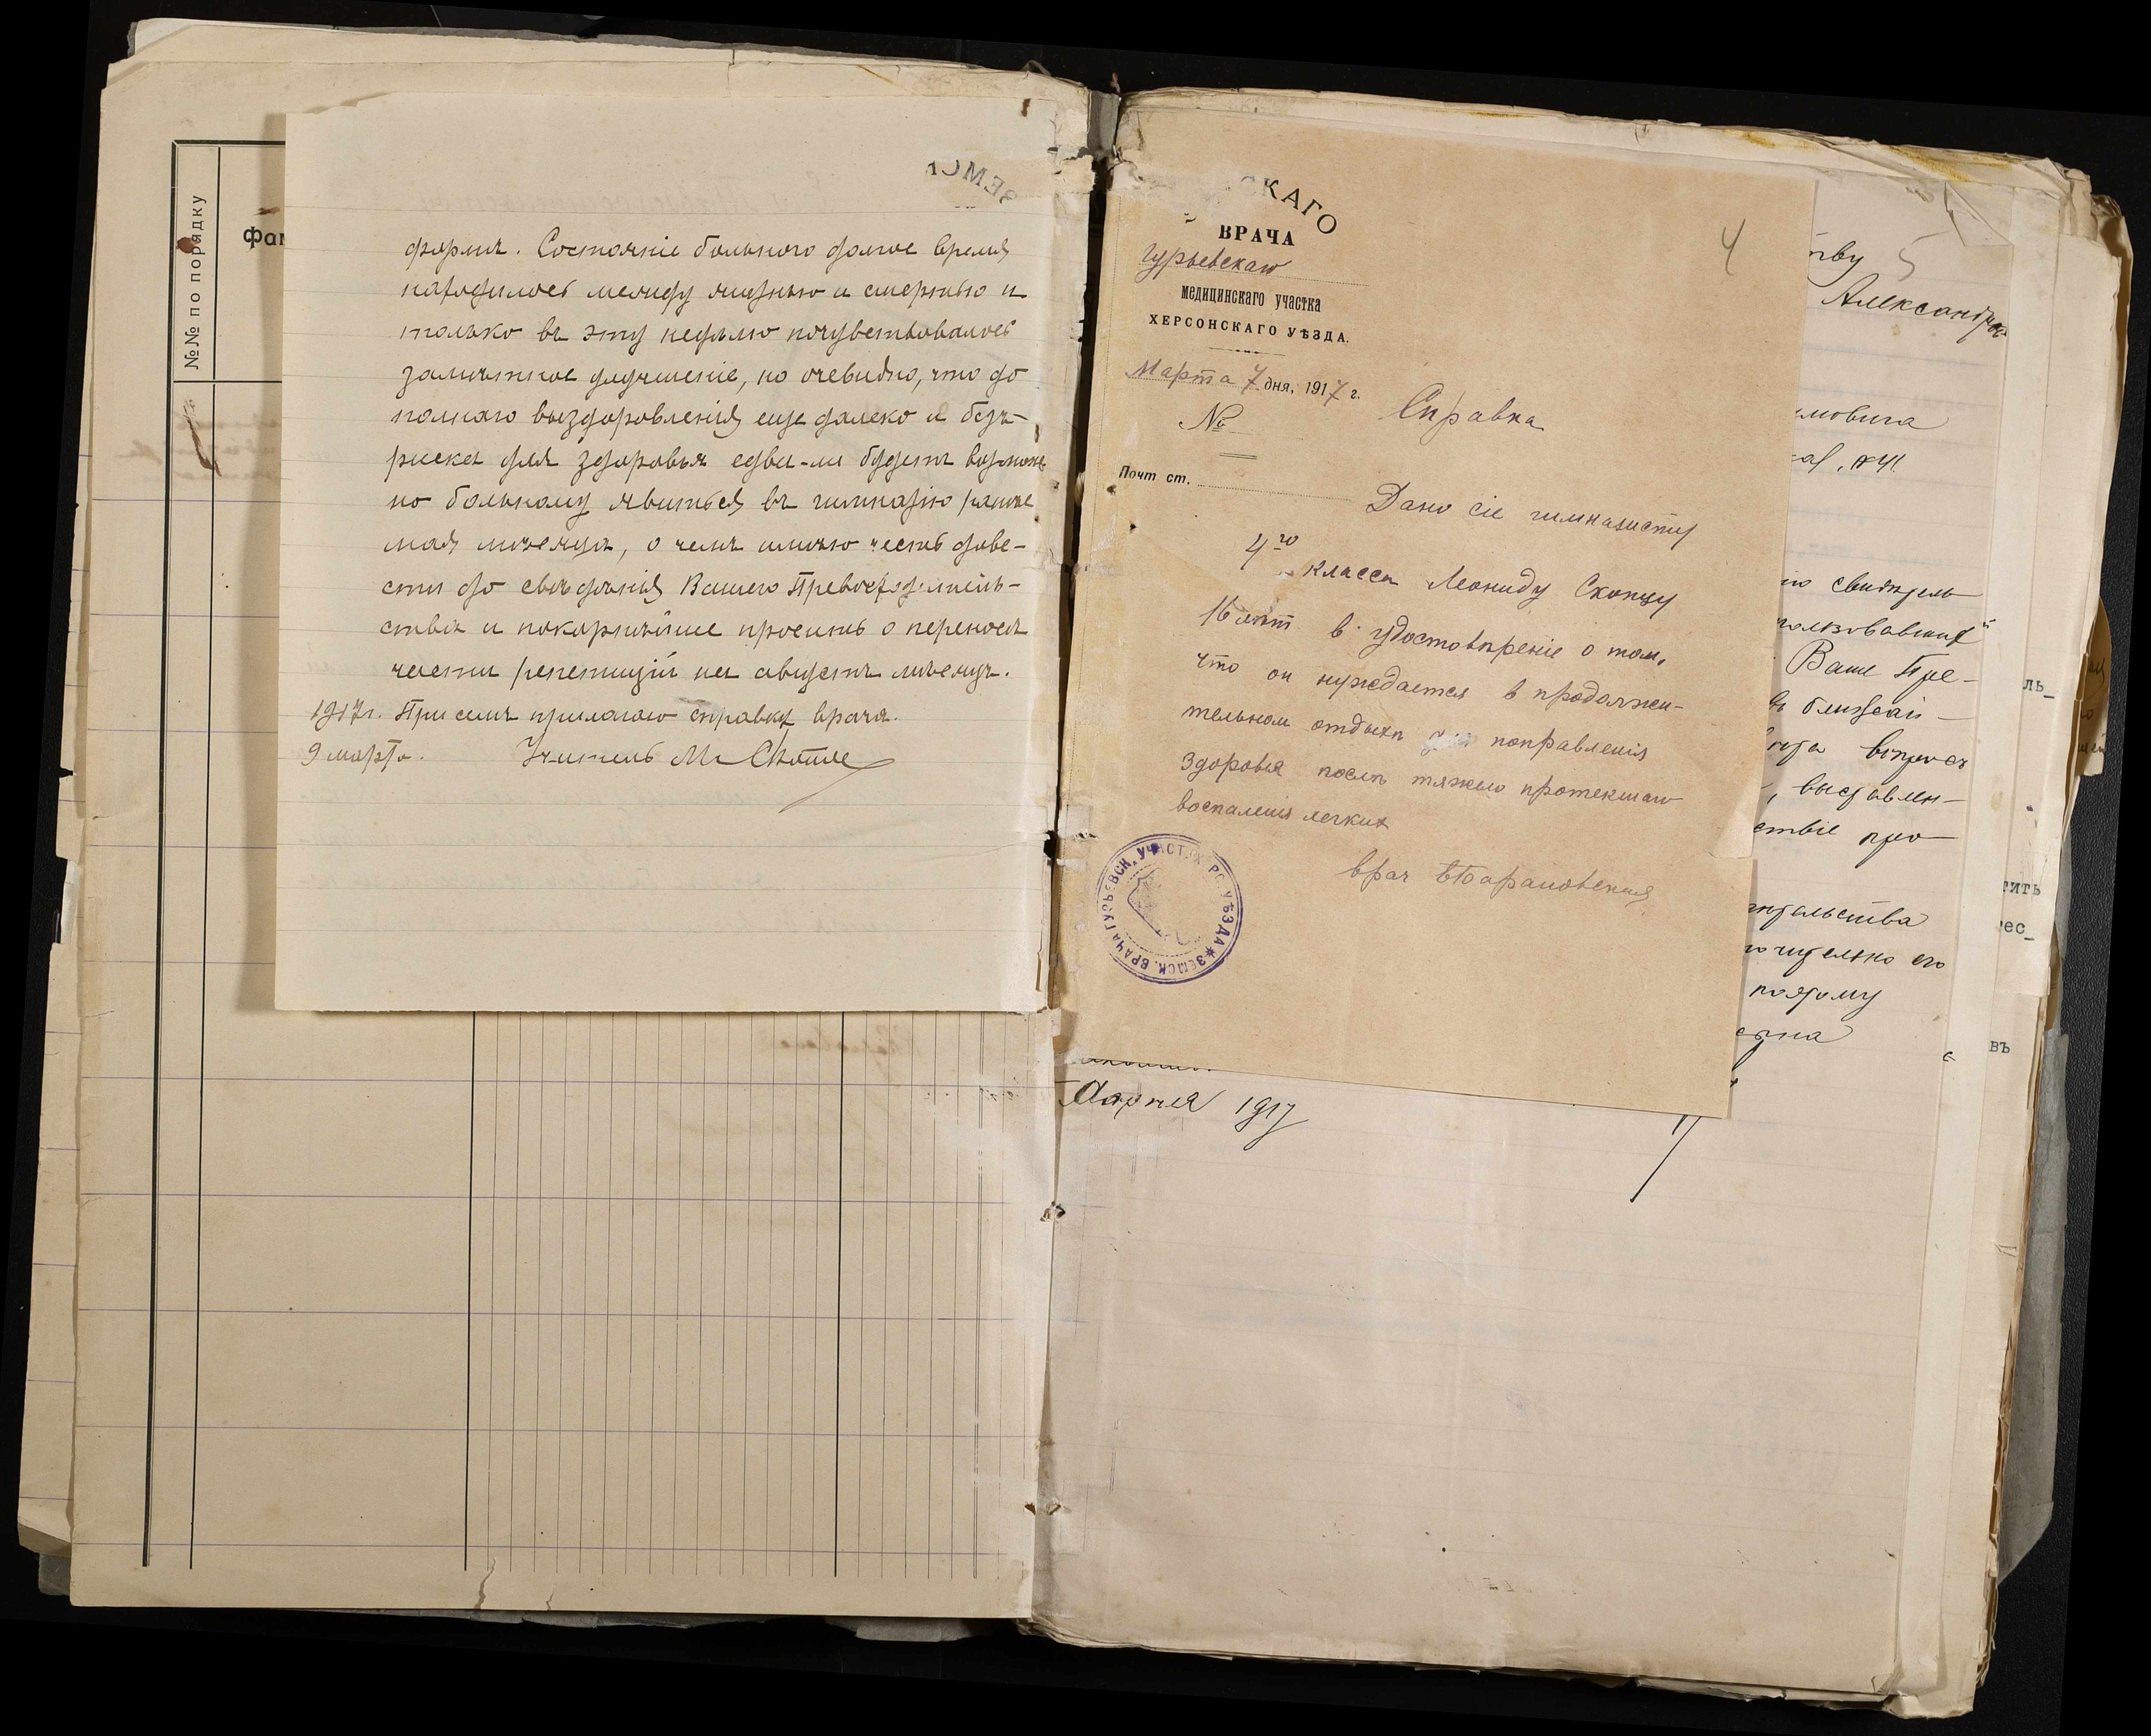 №№ по порядку
формѣ. Состояніе больного долгое время
находилось между жизнью и смертью и
только въ эту недѣлю почувствовалось
замѣтное улучшеніе, но очевидно, что до
полнаго выздоровленія еще далеко и безъ
риска для здоровья едва-ли будетъ возмож-
но больному явиться въ гимназію ранѣе
мая мѣсяца, о чемъ имѣю честь дове-
сти до свѣдѣнія Вашего Превосходитель-
ства и покорнѣйше просить о переносѣ
части репетицій на августъ мѣсяцъ.
1917г. При семъ прилагаю справку врача.
9 марта. Учитель М.
СКАГО
ВРАЧА
Гурьевскаго
медицинскаго участка
ХЕРСОНСКАГО УѢЗДА.
Марта 7 дня, 1917 г.
№
Почт ст.
4
Справка
Дано сіе гимназисту
4го класса Леониду Скопцу
16 лѣт в удостовѣреніе о том,
что он нуждается в продолжи-
тельном отдыхѣ для поправленія
здоровья послѣ тяжело протекшаго
воспаленія легких
врач
ЗЕМСК. ВРАЧА ГУРЬЕВСК. УЧАСТК УѢЗДА
Апрѣля 1917
тву 5
Александров
мовича
свидѣтель
пользовавших
Ваше Пре-
въ ближай-
вопросъ
, выставлен-
ствіе про
его
поэтому
сына
ль_
тить
ес_
въ